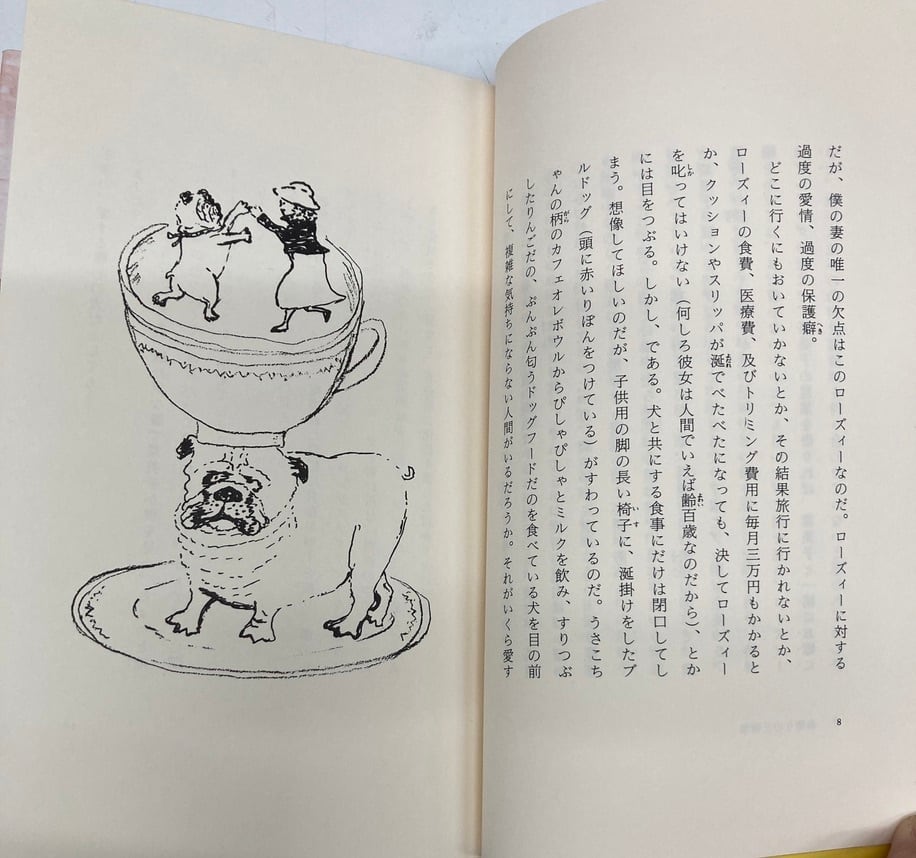 だが、僕の妻の唯一の欠点はこのローズィーなのだ。ローズィーに対する
過度の愛情、過度の保護癖。
どこに行くにもおいていかないとか、その結果旅行に行かれないとか、
ローズィーの食費、医療費、及びトリミング費用に毎月三万円もかかると
か、クッションやスリッパが涎でべたべたになっても、決してローズィー
を叱ってはいけない（何しろ彼女は人間でいえば齢百歳なのだから）、とか
には目をつぶる。しかし、である。犬と共にする食事にだけは閉口してし
まう。想像してほしいのだが、子供用の脚の長い椅子に、涎掛けをしたブ
ルドッグ（頭に赤いりぼんをつけている）がすわっているのだ。うさこち
ゃんの柄のカフェオレボウルからぴしゃぴしゃとミルクを飲み、すりつぶ
したりんごだの、ぷんぷん匂うドッグフードだのを食べている犬を目の前
にして、複雑な気持ちにならない人間がいるだろうか。それがいくら愛す
8